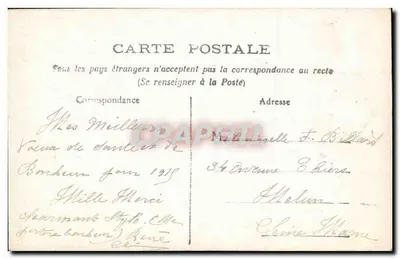 CARTE POSTALE
Tous les pays étrangers n'acceptent pas la correspondance au recto
(Se renseigner à la Poste)
Correspondance
Mes Meilleurs
Voeux de Santé et de
Bonheur pour 1915
Mille Merci
Charmant Stylo
porte bonheur) René
Adresse
Mademoiselle F.
34 Avenue Thiers
Melun
Seine Marne